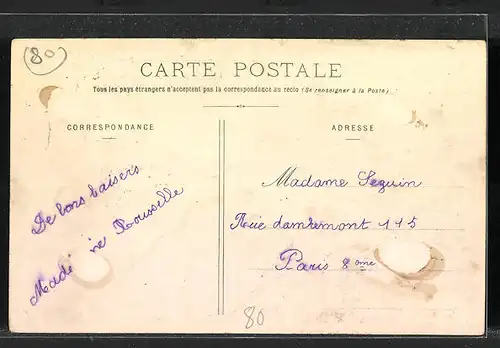 80
CARTE POSTALE
Tous les pays étrangers n'acceptent pas la correspondance au recto (Se renseigner à la Poste)
CORRESPONDANCE
De bons baisers
Rousselle
ADRESSE
Madame Seguin
Rue damremont 145
Paris 8ème
80